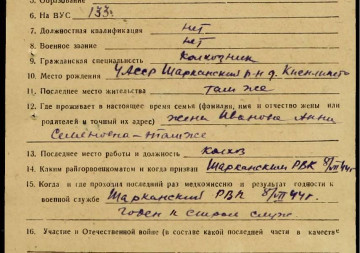 5. Образование
6. На ВУС 133
7. Должностная квалификация нет
8. Военное звание нет
9. Гражданская специальность Колхозник
10. Место рождения УАССР Шарканский р-н д.
11. Последнее место жительства там же
12. Где проживает в настоящее время семья (фамилия, имя и отчество жены или
родителей и точный их адрес) жена Иванова Анна
Семеновна - там же
13. Последнее место работы и должность колхоз
14. Каким райгорвоенкоматом и когда призван Шарканский РВК 8/VII 44г.
15. Когда и где проходил последний раз медкомиссию и результат годности к
военной службе Шарканский РВК 8/VII 44г.
годен к строев. служ.
16. Участие в Отечественной войне (в составе какой последней части в качестве